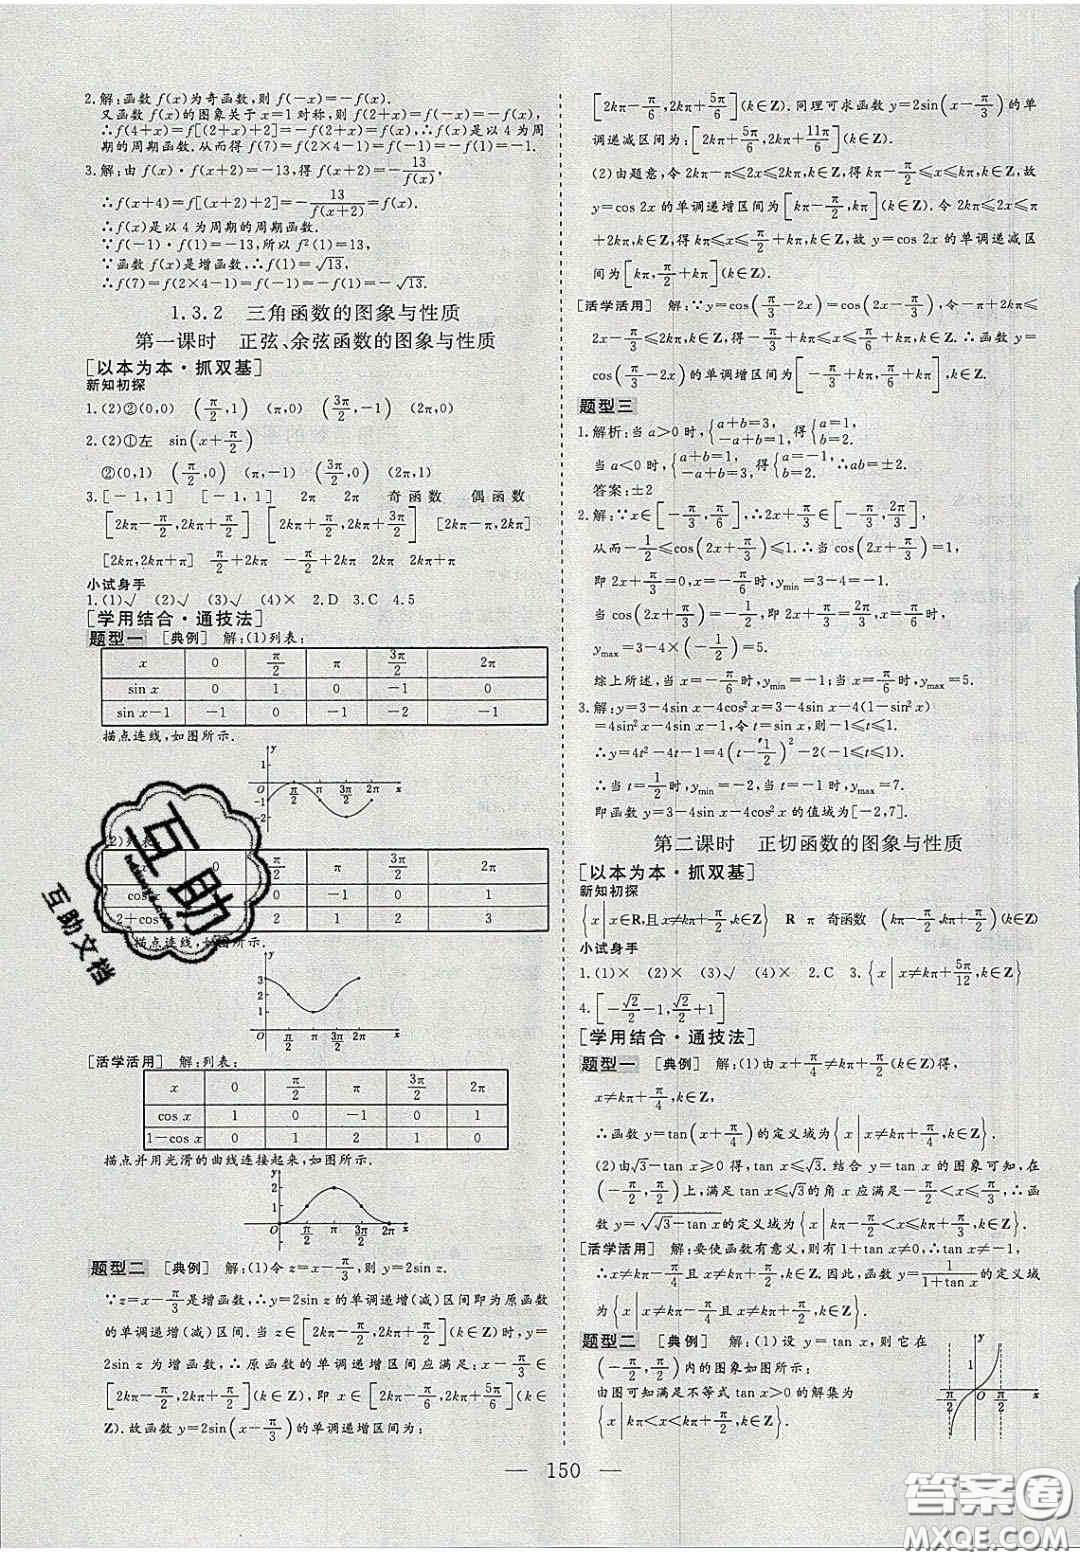 2.解:函数 f(x)为奇函数,则 f(-x)=-f(x).
又函数 f(x)的图象关于 x=1 对称,则 f(2+x)=f(-x)=-f(x),
∴f(4+x)=f[(2+x)+2]=-f(2+x)=f(x),∴f(x)是以 4 为周
期的周期函数.从而得 f(7)=f(2×4-1)=f(-1)=-f(1)=-1.
3.解:由 f(x)·f(x+2)=-13,得 f(x+2)=-13/f(x),
∴f(x+4)=f[(x+2)+2]=-13/f(x+2)=f(x).
∴f(x)是以 4 为周期的周期函数.
∵f(-1)·f(1)=-13,所以 f²(1)=13,
∵函数 f(x)是增函数,∴f(1)=√13,
∴f(7)=f(2×4-1)=f(-1)=-f(1)=-√13.
1.3.2 三角函数的图象与性质
第一课时 正弦、余弦函数的图象与性质
[以本为本·抓双基]
新知初探
1.(2)②(0,0) (π/2,1) (π,0) (3π/2,-1) (2π,0)
2.(2)①左 sin(x+π/2)
②(0,1) (π/2,0) (π,-1) (3π/2,0) (2π,1)
3.[-1,1] [-1,1] 2π 2π 奇函数 偶函数
[2kπ-π/2,2kπ+π/2] [2kπ+π/2,2kπ+3π/2] [2kπ-π,2kπ]
[2kπ,2kπ+π] π/2+2kπ -π/2+2kπ 2kπ π+2kπ
小试身手
1.(1)√ (2)√ (3)√ (4)× 2.D 3.C 4.5
[学用结合·通技法]
题型一 [典例] 解:(1)列表:
x 0 π/2 π 3π/2 2π
sin x 0 1 0 -1 0
sin x-1 -1 0 -1 -2 -1
描点连线,如图所示.
y 1 O -1 -2 π/2 π 3π/2 2π x
(2)列表
x 0 π/2 π 3π/2 2π
cos x 1 0 -1 0 1
2+cos x 3 2 1 2 3
描点连线,如图所示.
y 3 2 1 O π/2 π 3π/2 2π x
[活学活用] 解:列表:
x 0 π/2 π 3π/2 2π
cos x 1 0 -1 0 1
1-cos x 0 1 2 1 0
描点并用光滑的曲线连接起来,如图所示.
y 2 1 O π/2 π 3π/2 2π x
题型二 [典例] 解:(1)令 z=x-π/3,则 y=2sin z.
∵z=x-π/3是增函数,∴y=2sin z 的单调递增(减)区间即为原函数
的单调递增(减)区间.当 z∈[2kπ-π/2,2kπ+π/2](k∈Z)时,y=
2sin z 为增函数,∴原函数的单调递增区间应满足:x-π/3∈
[2kπ-π/2,2kπ+π/2](k∈Z),即 x∈[2kπ-π/6,2kπ+5π/6](k∈
Z).故函数 y=2sin(x-π/3)的单调递增区间为:
[2kπ-π/6,2kπ+5π/6](k∈Z).同理可求函数 y=2sin(x-π/3)的单
调递减区间为:[2kπ+5π/6,2kπ+11π/6](k∈Z).
(2)由题意,令 2kπ-π≤2x≤2kπ,k∈Z,得 kπ-π/2≤x≤kπ,k∈Z,故
y=cos 2x 的单调递增区间为[kπ-π/2,kπ](k∈Z).令 2kπ≤2x≤π
+2kπ,k∈Z,得 kπ≤x≤π/2+kπ,k∈Z,故 y=cos 2x 的单调递减区
间为[kπ,π/2+kπ](k∈Z).
[活学活用] 解:∵y=cos(π/3-2x)=cos(2x-π/3),令-π+
2kπ≤2x-π/3≤2kπ(k∈Z),得-π/3+kπ≤x≤π/6+kπ,k∈Z,∴y=
cos(π/3-2x)的单调增区间为[-π/3+kπ,π/6+kπ],k∈Z.
题型三
1.解析:当 a>0 时,{a+b=3, -a+b=1, 得{a=1, b=2.
当 a<0 时,{a+b=1, -a+b=3, 得{a=-1, b=2. ∴ab=±2.
答案:±2
2.解:∵x∈[-π/3,π/6],∴2x+π/3∈[-π/3,2π/3],
从而-1/2≤cos(2x+π/3)≤1.∴当 cos(2x+π/3)=1,
即 2x+π/3=0,x=-π/6时,yₘᵢₙ=3-4=-1.
当 cos(2x+π/3)=-1/2,即 2x+π/3=2π/3,x=π/6时,
yₘₐₓ=3-4×(-1/2)=5.
综上所述,当 x=-π/6时,yₘᵢₙ=-1;当 x=π/6时,yₘₐₓ=5.
3.解:y=3-4sin x-4cos²x=3-4sin x-4(1-sin²x)
=4sin²x-4sin x-1,令 t=sin x,则-1≤t≤1.
∴y=4t²-4t-1=4(t-1/2)²-2(-1≤t≤1).
∴当 t=1/2时,yₘᵢₙ=-2,当 t=-1 时,yₘₐₓ=7.
即函数 y=3-4sin x-4cos²x 的值域为[-2,7].
第二课时 正切函数的图象与性质
[以本为本·抓双基]
新知初探
{x|x∈R,且 x≠kπ+π/2,k∈Z} R π 奇函数 (kπ-π/2,kπ+π/2)(k∈Z)
小试身手
1.(1)× (2)× (3)√ (4)× 2.C 3.{x|x≠kπ+5π/12,k∈Z}
4.[-√2/2-1,√2/2+1]
[学用结合·通技法]
题型一 [典例] 解:(1)由 x+π/4≠kπ+π/2,k∈Z 得,
x≠kπ+π/4,k∈Z,
∴函数 y=tan(x+π/4)的定义域为{x|x≠kπ+π/4,k∈Z}.
(2)由√3-tan x≥0 得,tan x≤√3.结合 y=tan x 的图象可知,在
(-π/2,π/2)上,满足 tan x≤√3的角 x 应满足-π/2<x≤π/3,∴函
数 y=√(√3-tan x)的定义域为{x|kπ-π/2<x≤kπ+π/3,k∈Z}.
[活学活用] 解:要使函数有意义,则有 1+tan x≠0,∴tan x≠-1,
∴x≠kπ-π/4且 x≠kπ+π/2,k∈Z.因此,函数 y=1/(1+tan x)的定义域
为{x|x≠kπ-π/4且 x≠kπ+π/2,k∈Z}.
题型二 [典例] 解:(1)设 y=tan x,则它在
(-π/2,π/2)内的图象如图所示:
由图可知满足不等式 tan x>0 的解集为
{x|kπ<x<kπ+π/2,k∈Z}.
y 1 -π/2 O π/2 x
— 150 —
互助
互助文档
答案圈
MXQE.COM